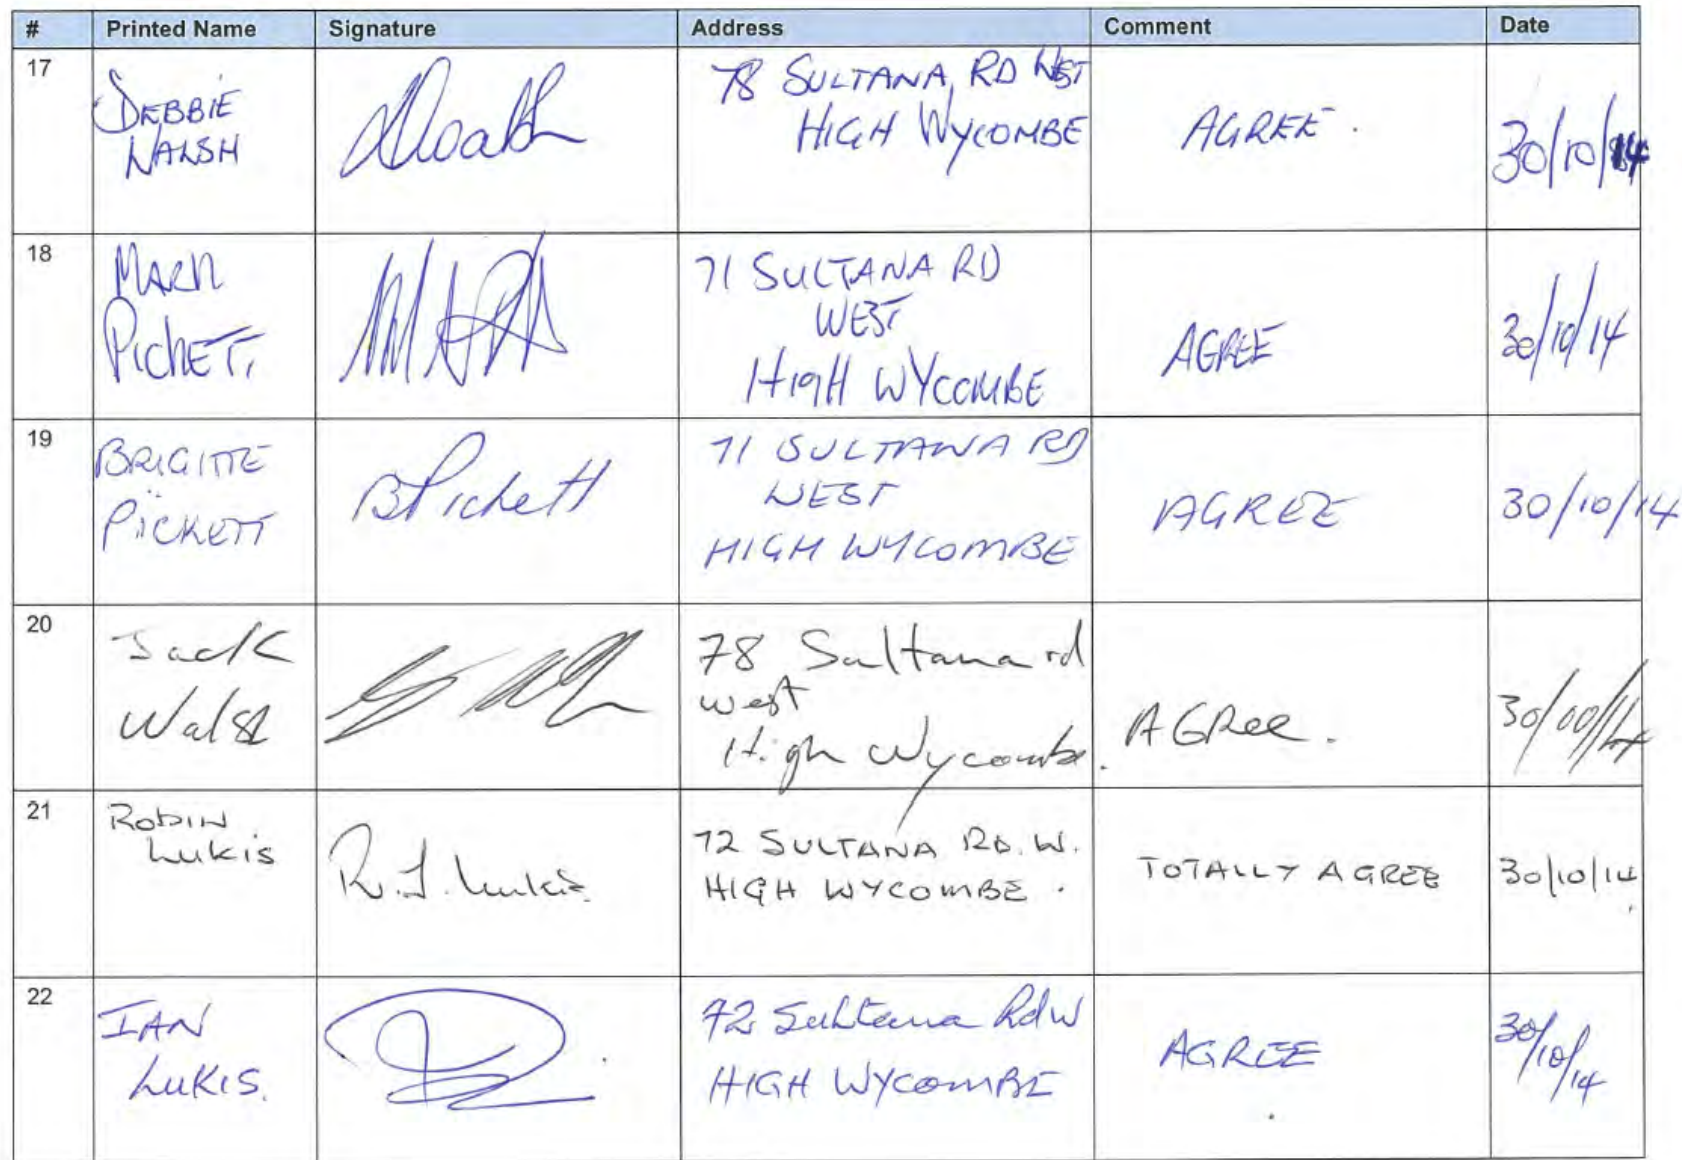 # Printed Name Signature Address Comment Date
17 DEBBIE WALSH 78 SULTANA RD WEST HIGH WYCOMBE AGREE. 30/10/14
18 MARK PICKETT 71 SULTANA RD WEST HIGH WYCOMBE AGREE 30/10/14
19 BRIGITTE PICKETT BPickett 71 SULTANA RD WEST HIGH WYCOMBE AGREE 30/10/14
20 Jack Walsh 78 Sultana rd west High Wycombe. AGRee. 30/00/14
21 ROBIN LUKIS R.J. Lukis. 72 SULTANA RD. W. HIGH WYCOMBE. TOTALLY AGREE 30/10/14
22 IAN LUKIS. 72 Sultana Rd W HIGH WYCOMBE AGREE 30/10/14